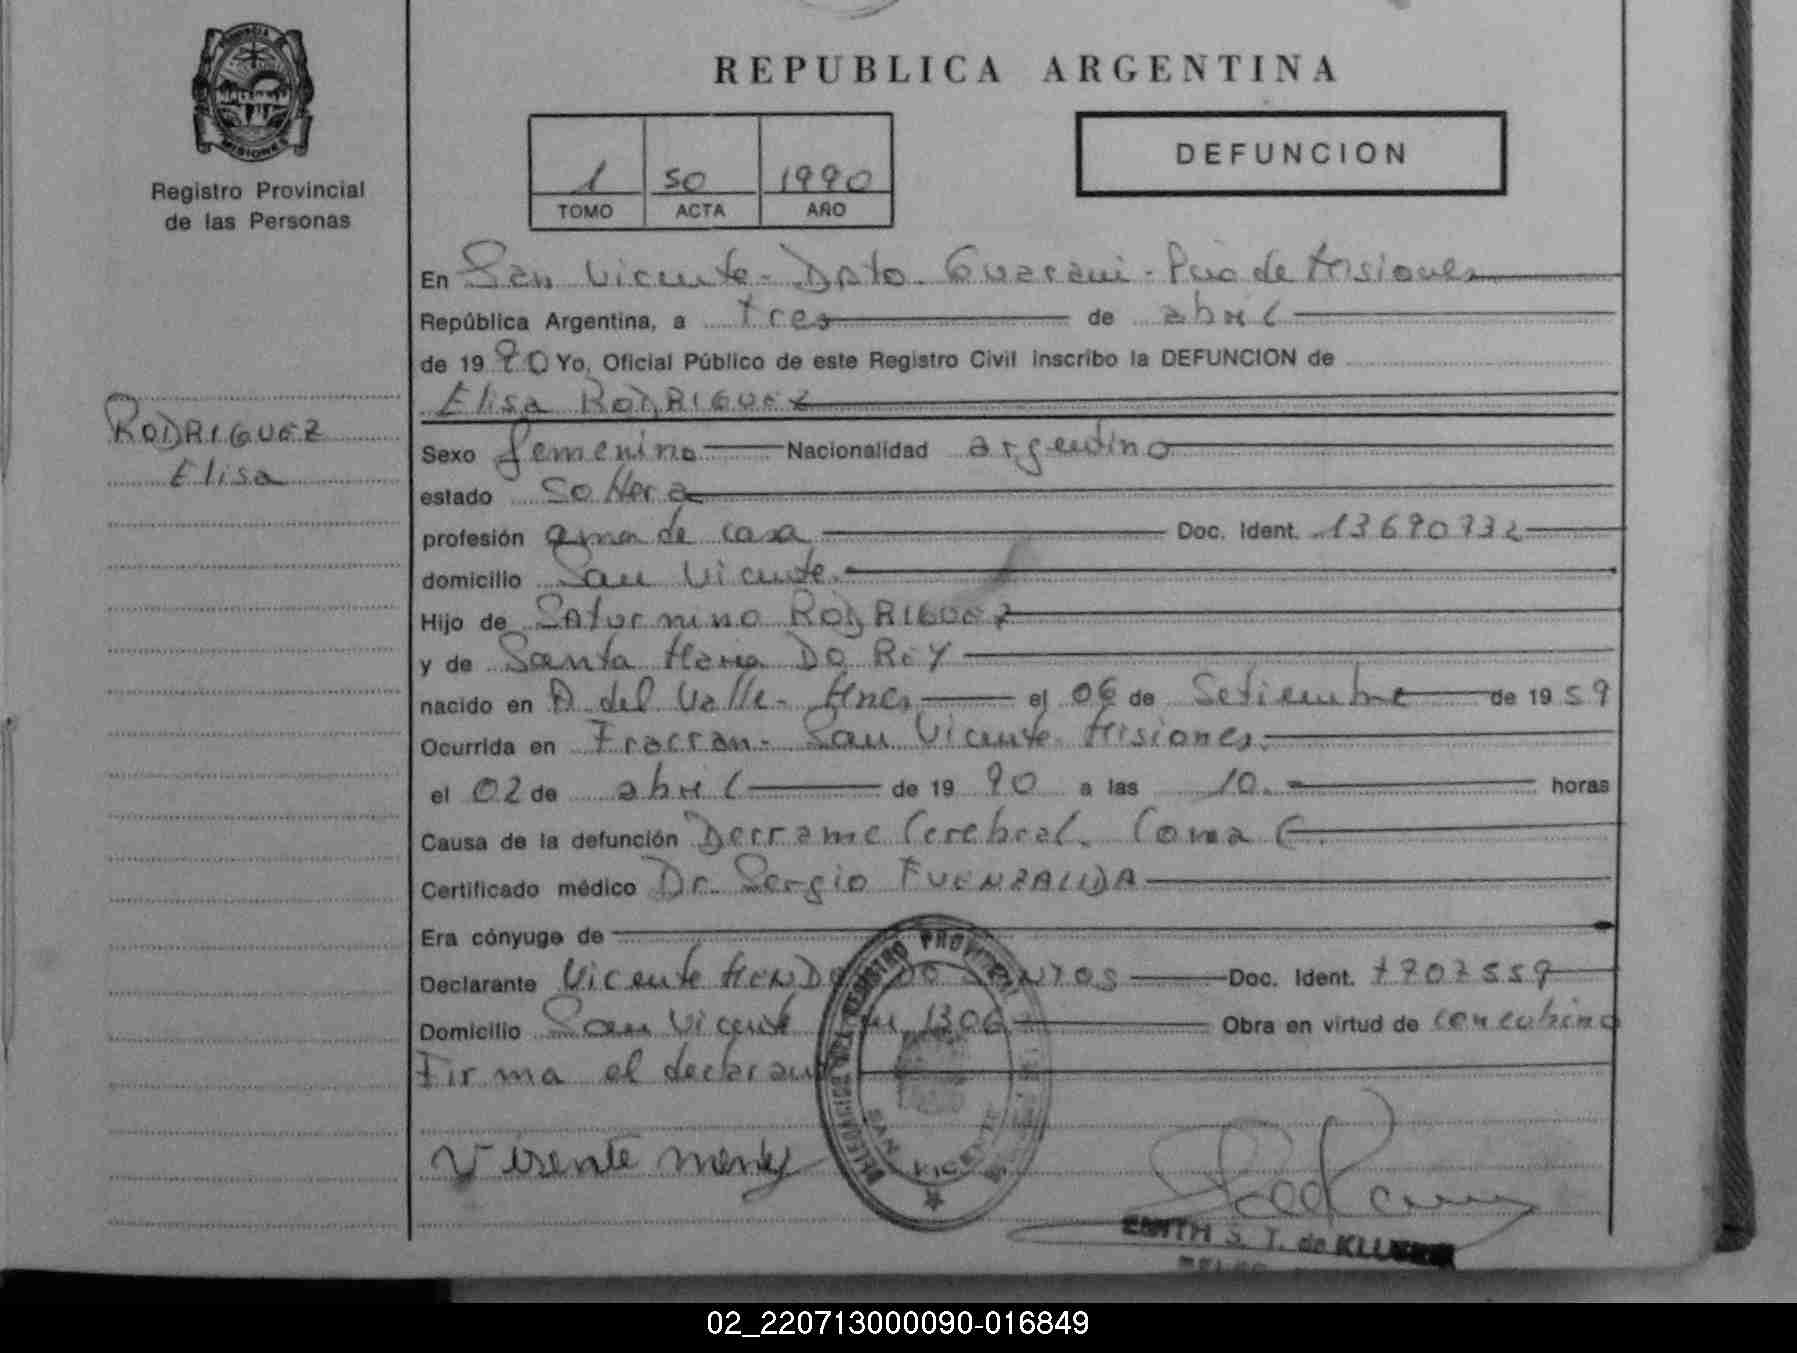 PROVINCIA DE
MISIONES
Registro Provincial
de las Personas
RODRIGUEZ
Elisa
REPUBLICA ARGENTINA
1 50 1990
TOMO ACTA AÑO
DEFUNCION
En San Vicente - Dpto. Guarani - Pcia de Misiones
República Argentina, a tres de abril
de 1990 Yo, Oficial Público de este Registro Civil inscribo la DEFUNCION de
Elisa RODRIGUEZ
Sexo femenino Nacionalidad argentino
estado soltera
profesión ama de casa Doc. Ident. 13690732
domicilio San Vicente.
Hijo de Saturnino RODRIGUEZ
y de Santa Maria DO REY
nacido en A. del Valle - Mnes el 06 de Setiembre de 1959
Ocurrida en Fracran - San Vicente Misiones.
el 02 de abril de 1990 a las 10. horas
Causa de la defunción Derrame Cerebral. Coma C.
Certificado médico Dr. Sergio FUENZALIDA
Era cónyuge de
Declarante Vicente MENDE DO SANTOS Doc. Ident. 7707559
Domicilio San Vicente 1306 Obra en virtud de concubino
Firma el declarante
Visente mendes
SAN VICENTE
S. T. de
02_220713000090-016849